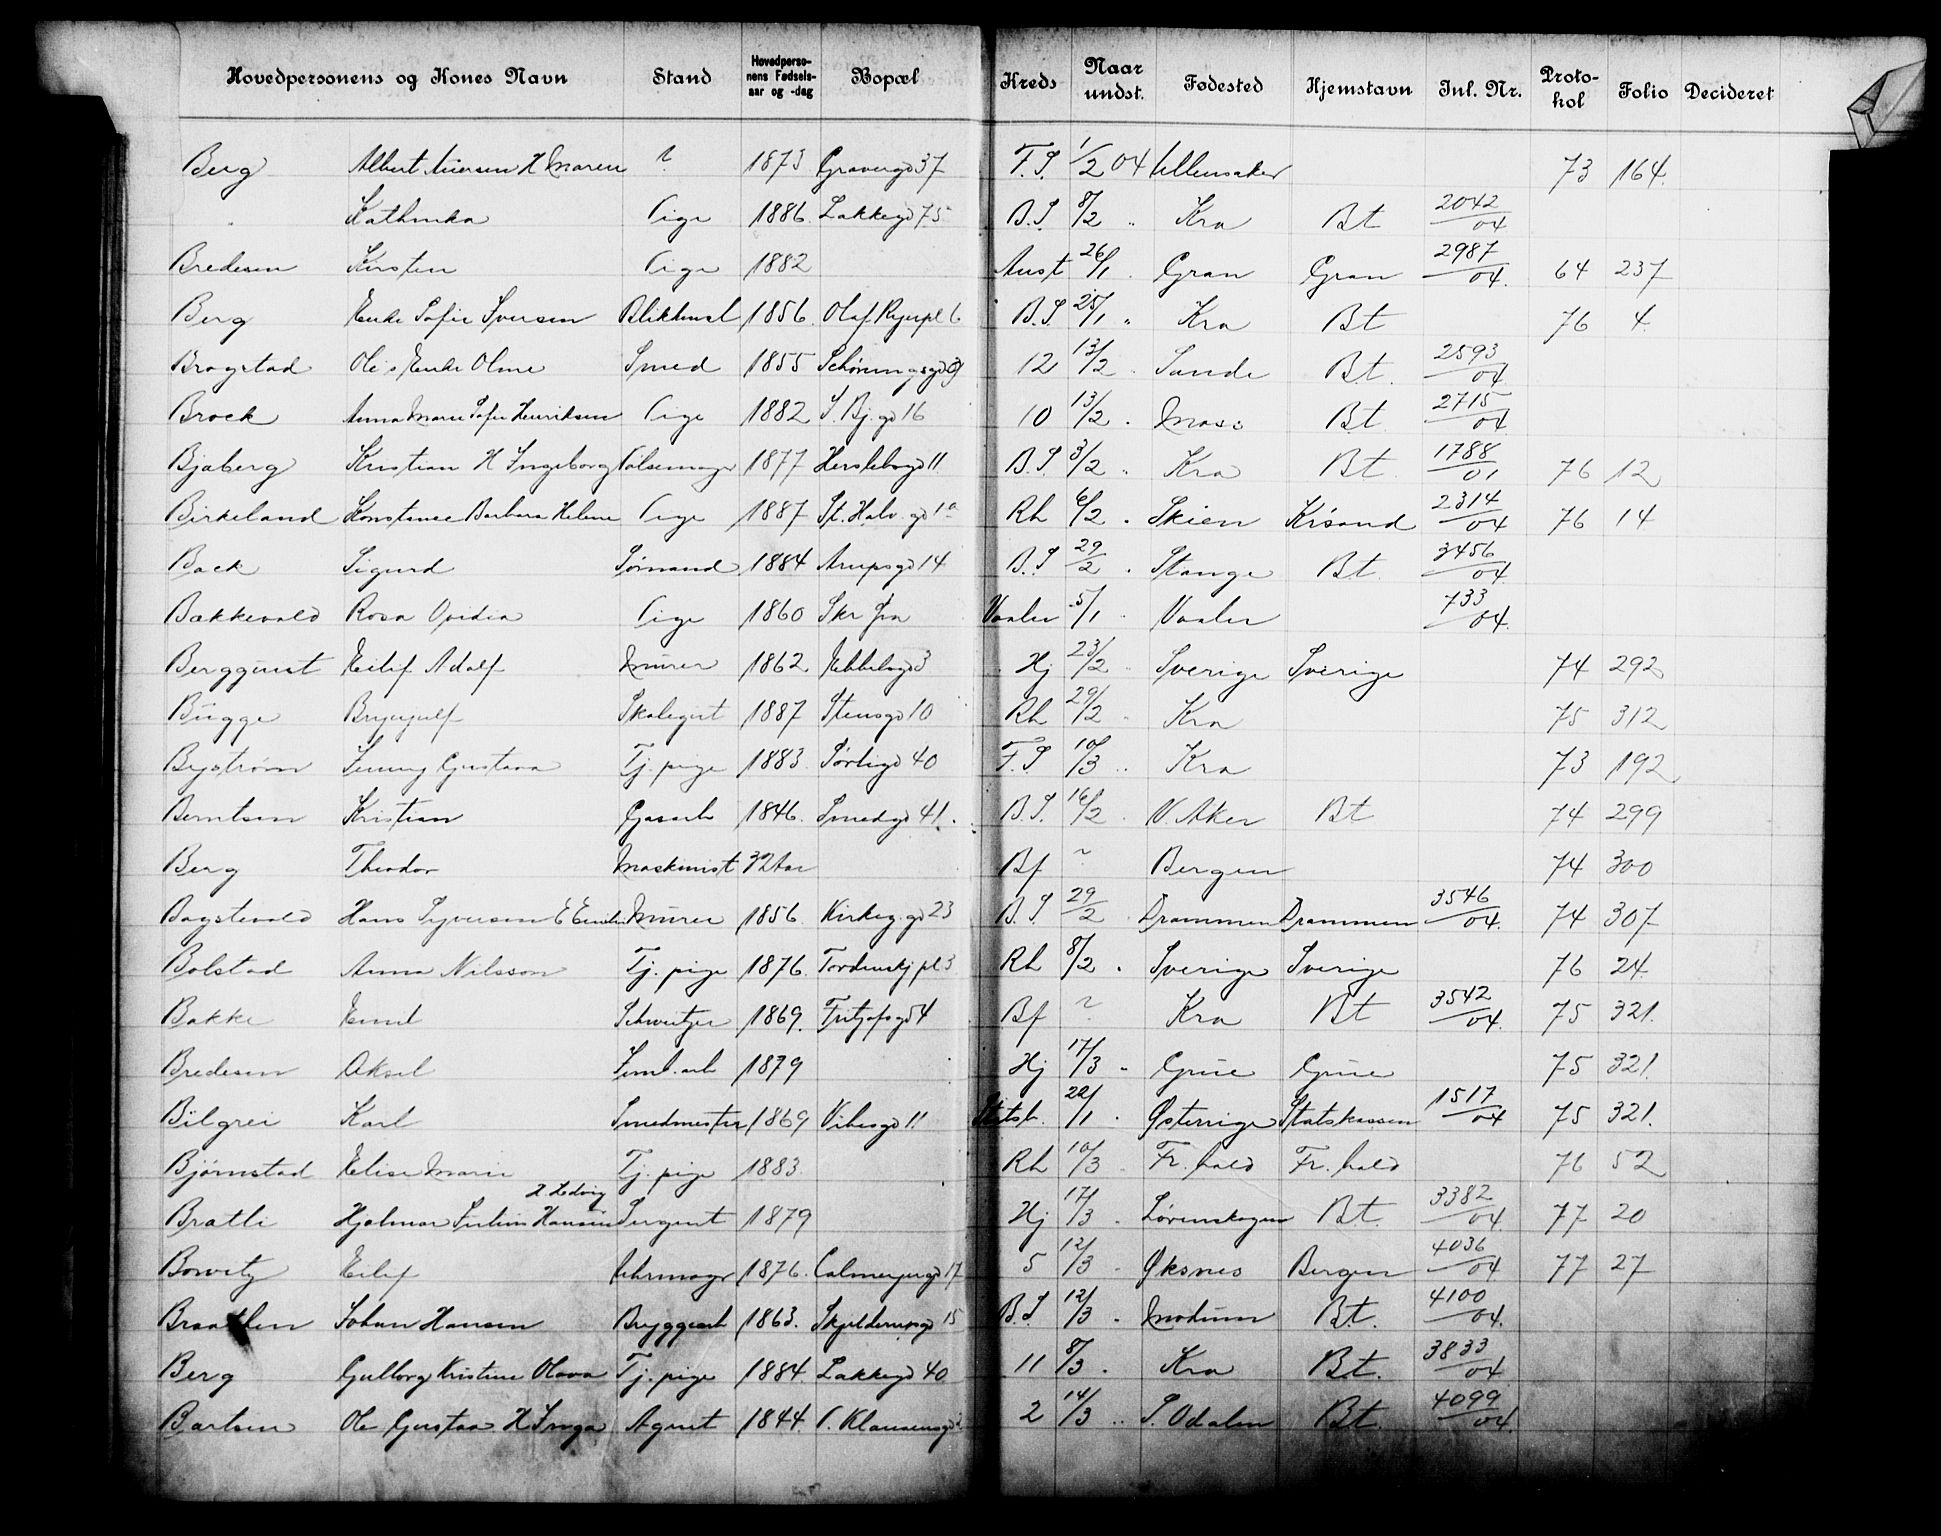 Hovedpersonens og Kones Navn Stand Hovedperso-nens Fødsels-aar og -dag Bopæl Kreds Naar undst. Fødested Hjemstavn Inl. Nr. Proto-kol Folio Decideret
Berg Albert Iversen H Maren ? 1873 Gravergd 37 F.S. 1/2 04 Ullensaker 73 164.
" Kathinka Pige 1886. Lakkegd 75 B.S. 8/2 " Kra Bt 2042/04
Bredesen Kirsten Pige 1882 Aust 26/1 . Gran Gran 2987/04. 64 237
Berg Enke Sofie Iversen Blikkensl 1856. Olaf Ryespl 6 B.S. 25/1 " Kra Bt 76 4.
Brogstad Ole's Enke Oline Smed 1855 Schøningsgd 9 12 13/2 . Sande Bt. 2593/04
Brock Anna Marie Sofie Henriksen Pige 1882 S. Bj. gd 16 10 13/2 . Moss Bt. 2715/04
Bjaberg Kristian H Ingeborg Pølsemager 1877 Herslebsgd 11 B.S. 3/2 " Kra Bt 1788/01 76 12
Birkeland Konstanse Barbara Helene Pige 1887 St. Halv. gd 1a Rh 6/2 . Skien Krsand 2314/04 76 14
Back Sigurd Sømand 1884 Arupsgd 14 B.S 29/2 . Stange Bt. 3456/04.
Bakkevold Rosa Ovidia Pige 1860 Skr fra Vaaler 5/1 . Vaaler 733/04.
Bergquist Eilif Adolf Murer 1862 Jkkelsgd 3 Hj 23/2 " Sverige Sverige 74 292
Bugge Brynjulf Skolegut 1887 Stensgd 10 Rh 29/2 . Kra 75 312
Bystrøm Jenny Gustava Tj. pige 1883. Sørligd 40 F.S. 10/3 " Kra 73 192
Berntsen Kristian Gasarb 1846. Smedgd 41. B.S. 16/2 . V. Aker Bt 74 299
Berg Theodor Maskinist 32 Aar Bf ? Bergen 74 300
Bogstevold Hans Syversen E Emilie Murer 1856. Kirkeg. gd 23 B.S 29/2 . Drammen Drammen 3546/04. 74 307
Bolstad Anna Nilsson Tj. pige 1876. Tordenskj pl 3 Rh 8/2 . Sverige Sverige 76 24.
Bakke Emil Schweitzer 1869. Fritjofsgd 4 Bf ? Kra Bt 3542/04. 75 321.
Bredesen Aksel Timl. arb 1879 Hj 17/3 " Grue Grue 75 321.
Bilgrei Karl Smedmester 1869 Vibesgd 11 Statsb. 22/1 . Østerrige Statskassen 1517/04 75 321.
Bjørnstad Elise Marie Tj. pige 1883. Rh 10/3 . Fr. hald Fr. hald 76 52
H Hedvig
Bratli Hjalmar Julius Hansen Sergent 1879 Hj 17/3 . Lørenskogen Bt. 3382/04. 77 20
Borvitz Eilif Uhrmager 1876. Calmeyergd 17 5 12/3 . Øksnes Bergen 4036/04 77 27
Braathen Johan Hansen Bryggearb 1863. Skjelderupsgd 15 B.S. 12/3 . Modum Bt. 4100/04.
Berg Gulborg Kristine Olava Tj. pige 1884. Lakkegd 40 11 8/3 . Kra Bt. 3833/04
Bartsen Ole Gustav H Inga Agent 1844. P. Klausensgd 2 14/3 " S. Odalen Bt. 4099/04.